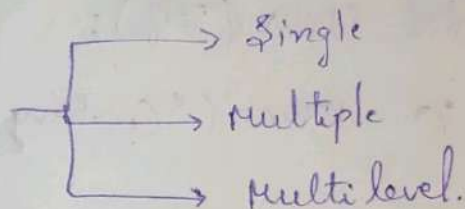 Single
Multiple
Multi level.